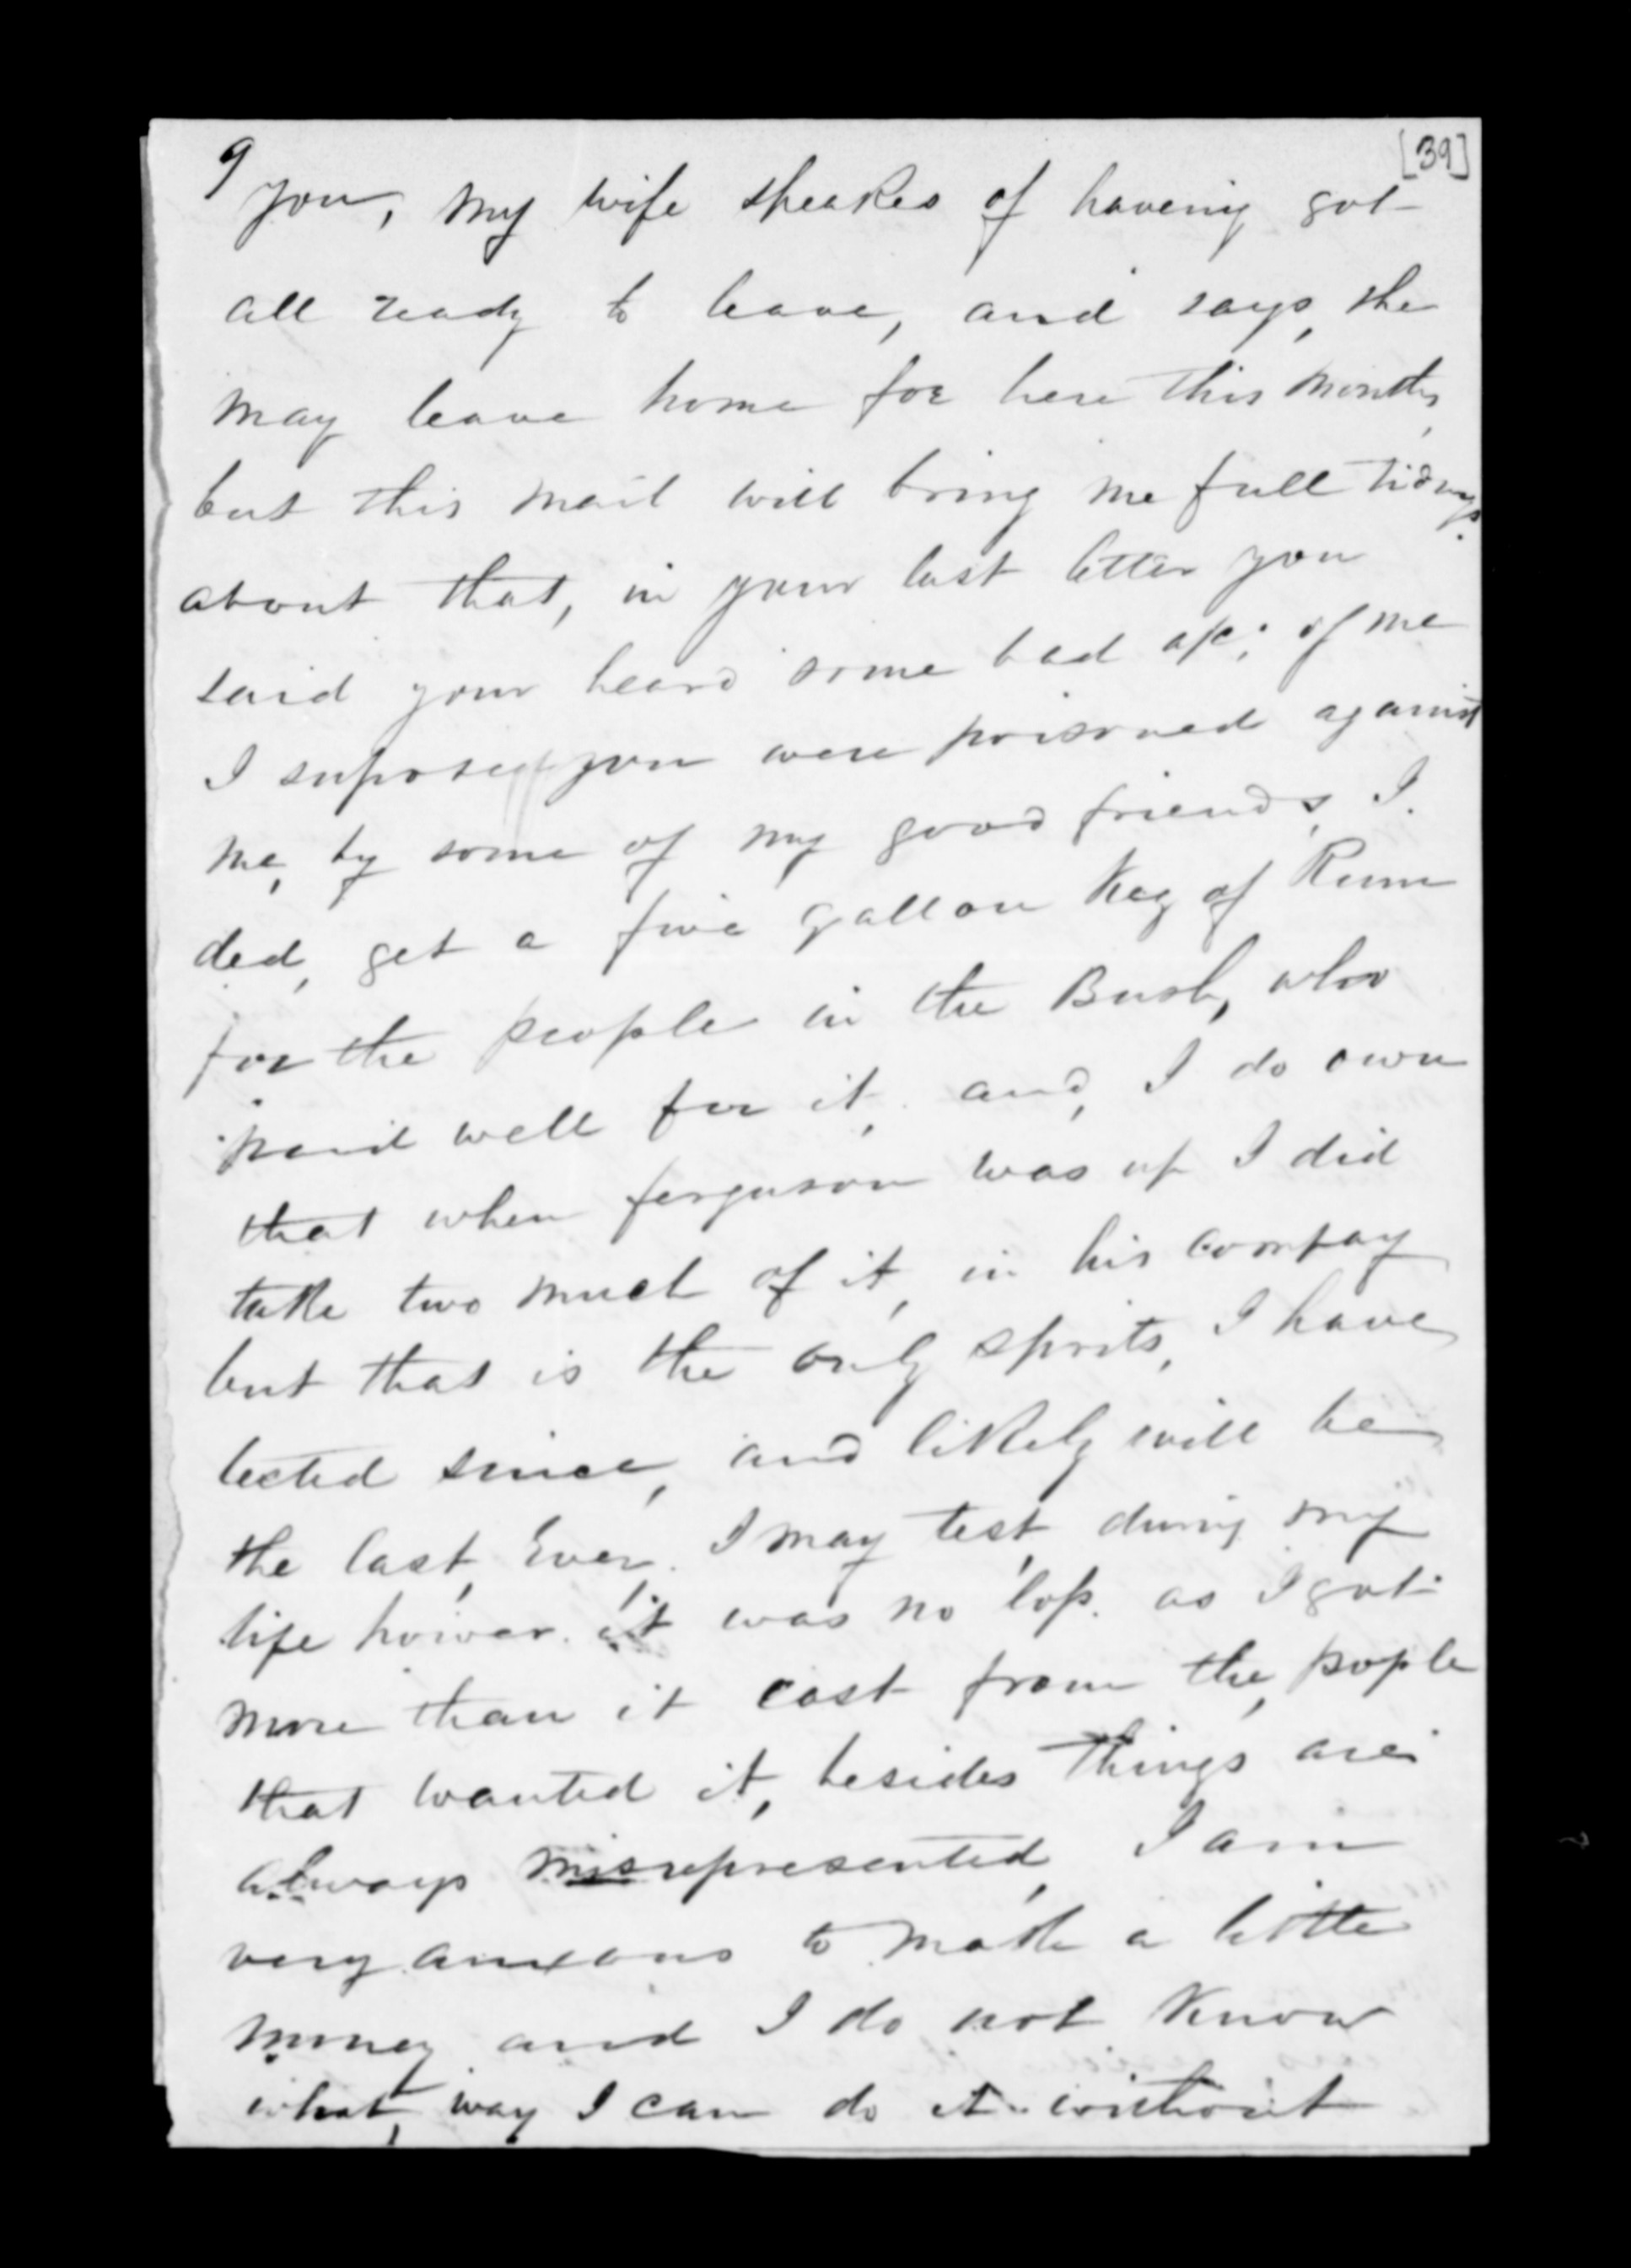 9 [39]
you, my wife speakes of haveing got
all ready to leave, and says, she
may leave home for here this month,
but this mail will bring me full tidings.
about that, in your last letter you
said your heard some bad a/c; of me
I suposed you were poisoned against
me, by some of my good friends, I.
ded, get a five gallon Keg of Rum
for the people in the Bush, who
paid well for it, and, I do own
that when ferguson was up I did
take two much of it, in his compay
but that is the only sprits, I have
tected since, and likely will be
the last, Ever. I may test, during my
life hower. it was no loss. as I got
more than it cost from the, pople
that wanted it, besides things are
always misrepresented, I am
very anxious to make a little
money and I do not Know
what, way I can do it without